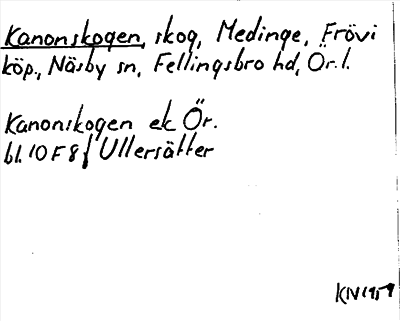 Kanonskogen, skog, Medinge, Frövi
köp., Näsby sn, Fellingsbro hd, Ör.l.
Kanonskogen ek Ör.
bl. 10 F 8 f Ullersätter
KN 1959